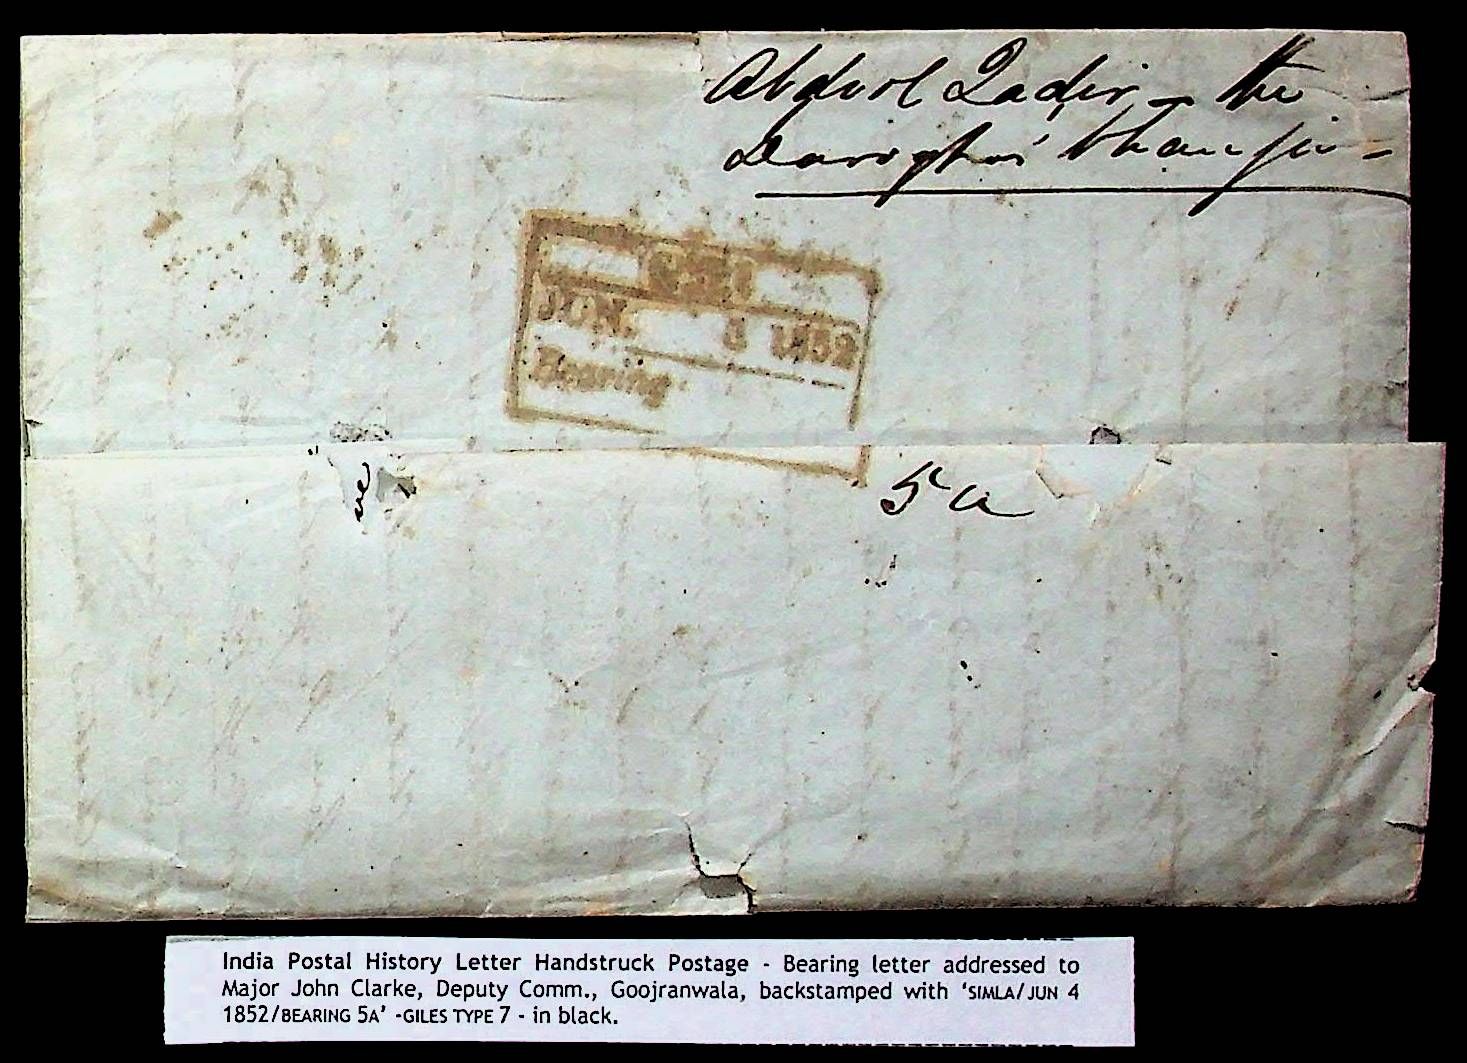 Abdool Qadir - the
JUN. 1852
Bearing
5a
India Postal History Letter Handstruck Postage - Bearing letter addressed to
Major John Clarke, Deputy Comm., Goojranwala, backstamped with ‘SIMLA/JUN 4
1852/BEARING 5A’ -GILES TYPE 7 - in black.